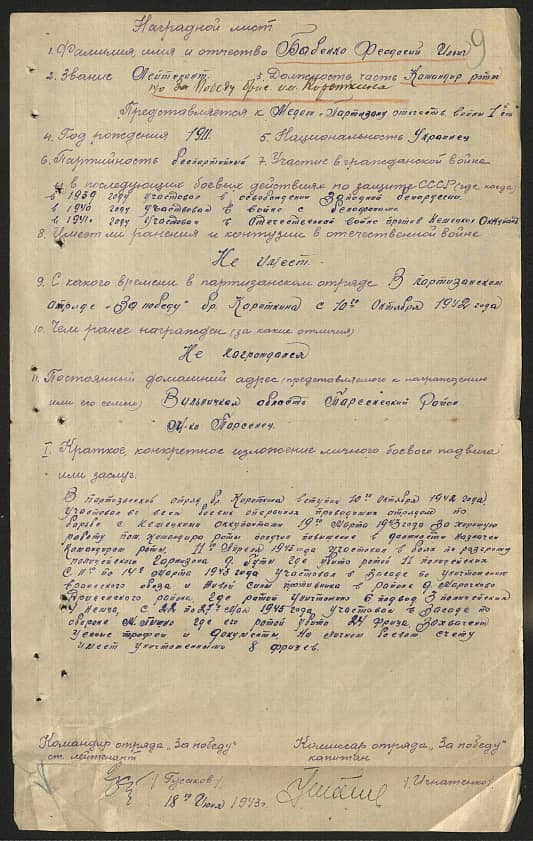 9
Наградной лист
1. Фамилия, имя и отчество Бабенко Феодосий
2. Звание Лейтенант 3. Должность, часть Командир роты
п/о За Победу бриг. им. Короткина
Представляется к Медал. „Партизану отечеств войны 1ой ст"
4. Год рождения 1911 5. Национальность Украинец
6. Партийность беспартийный 7. Участие в гражданской войне
и в последующих боевых действиях по защите СССР (где, когда)
в 1939 году участвовал в освобождении Западной Белоруссии.
в 1940 году участвовал в войне с белофинами.
в 1941 году участвовал в Отечественной войне против Немецких Оккупант
8. Имеет ли ранения и контузии в отечественной войне
Не имеет.
9. С какого времени в партизанском отряде В партизанском
отряде „За победу" бр. Короткина с 10го Октября 1942 года
10. Чем ранее награжден (за какие отличия)
Не награждался
11. Постоянный домашний адрес (представляемого к награждению
или его семьи) область Район
I. Краткое, конкретное изложение личного боевого подвига
или заслуг.
В партизанский отряд бр. Короткина вступил 10го Октября 1942 года,
участвовал во всех боевых операциях проведенных отрядом по
борьбе с немецкими оккупантами 19го Марта 1943 года за хорошую
работу пом. командира роты получил повышение в должности назначен
Командиром роты. 11го Апреля 1943 года участвовал в боях по разгрому
полицейского Гарнизона д. где убито ротой 11 полицейских
С 11го по 14го Марта 1943 года участвовал в Засаде по уничтожению
вражеского обоза и Живой Силы противника в Районе д.
района, где ротой уничтожено 6 подвод 3 полицейских
Немца, с 22 по 25го Мая 1943 года, участвовал в Засаде по
обороне где его ротой убито 24 фрица, Захвачены
Ценные трофеи и документы. На личном боевом счету
имеет уничтоженными 8 фрицев.
Командир отряда „За победу" Комиссар отряда „За победу"
ст. лейтенант капитан
(Гусаков) (Игнатенко)
18го Июля 1943г.